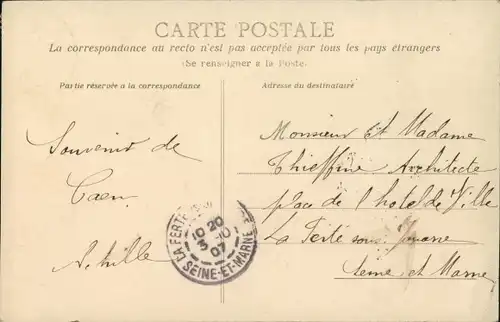 CARTE POSTALE
La correspondance au recto n'est pas acceptée par tous les pays étrangers
(Se renseigner a la Poste.
Partie réservée a la correspondance
Adresse du destinataire
Souvenir de
Caen
Achille
Monsieur Et Madame
Thieffine Architecte
place de l'hotel de Ville
La Ferté sous Jouarre
Seine et Marne
LA FERTE
10 20
3 -10
07
SEINE-ET-MARNE